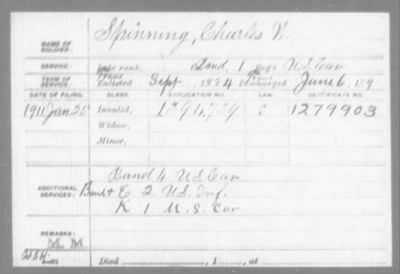 Spinning, Charles W.
NAME OF SOLDIER:
SERVICE: Late rank, Band, 1 Reg't U.S. Cav
TERM OF SERVICE: Enlisted Sept 1884 Discharged June 6, 189
DATE OF FILING. CLASS. APPLICATION NO. LAW. CERTIFICATE NO.
1911 Jan 25 Invalid, 1279903
Widow,
Minor,
Band 4 U.S. Cav
ADDITIONAL SERVICES: Band & E 2 U.S. Inf.
K 1 U.S. Cav
REMARKS:
Died , 1 , at